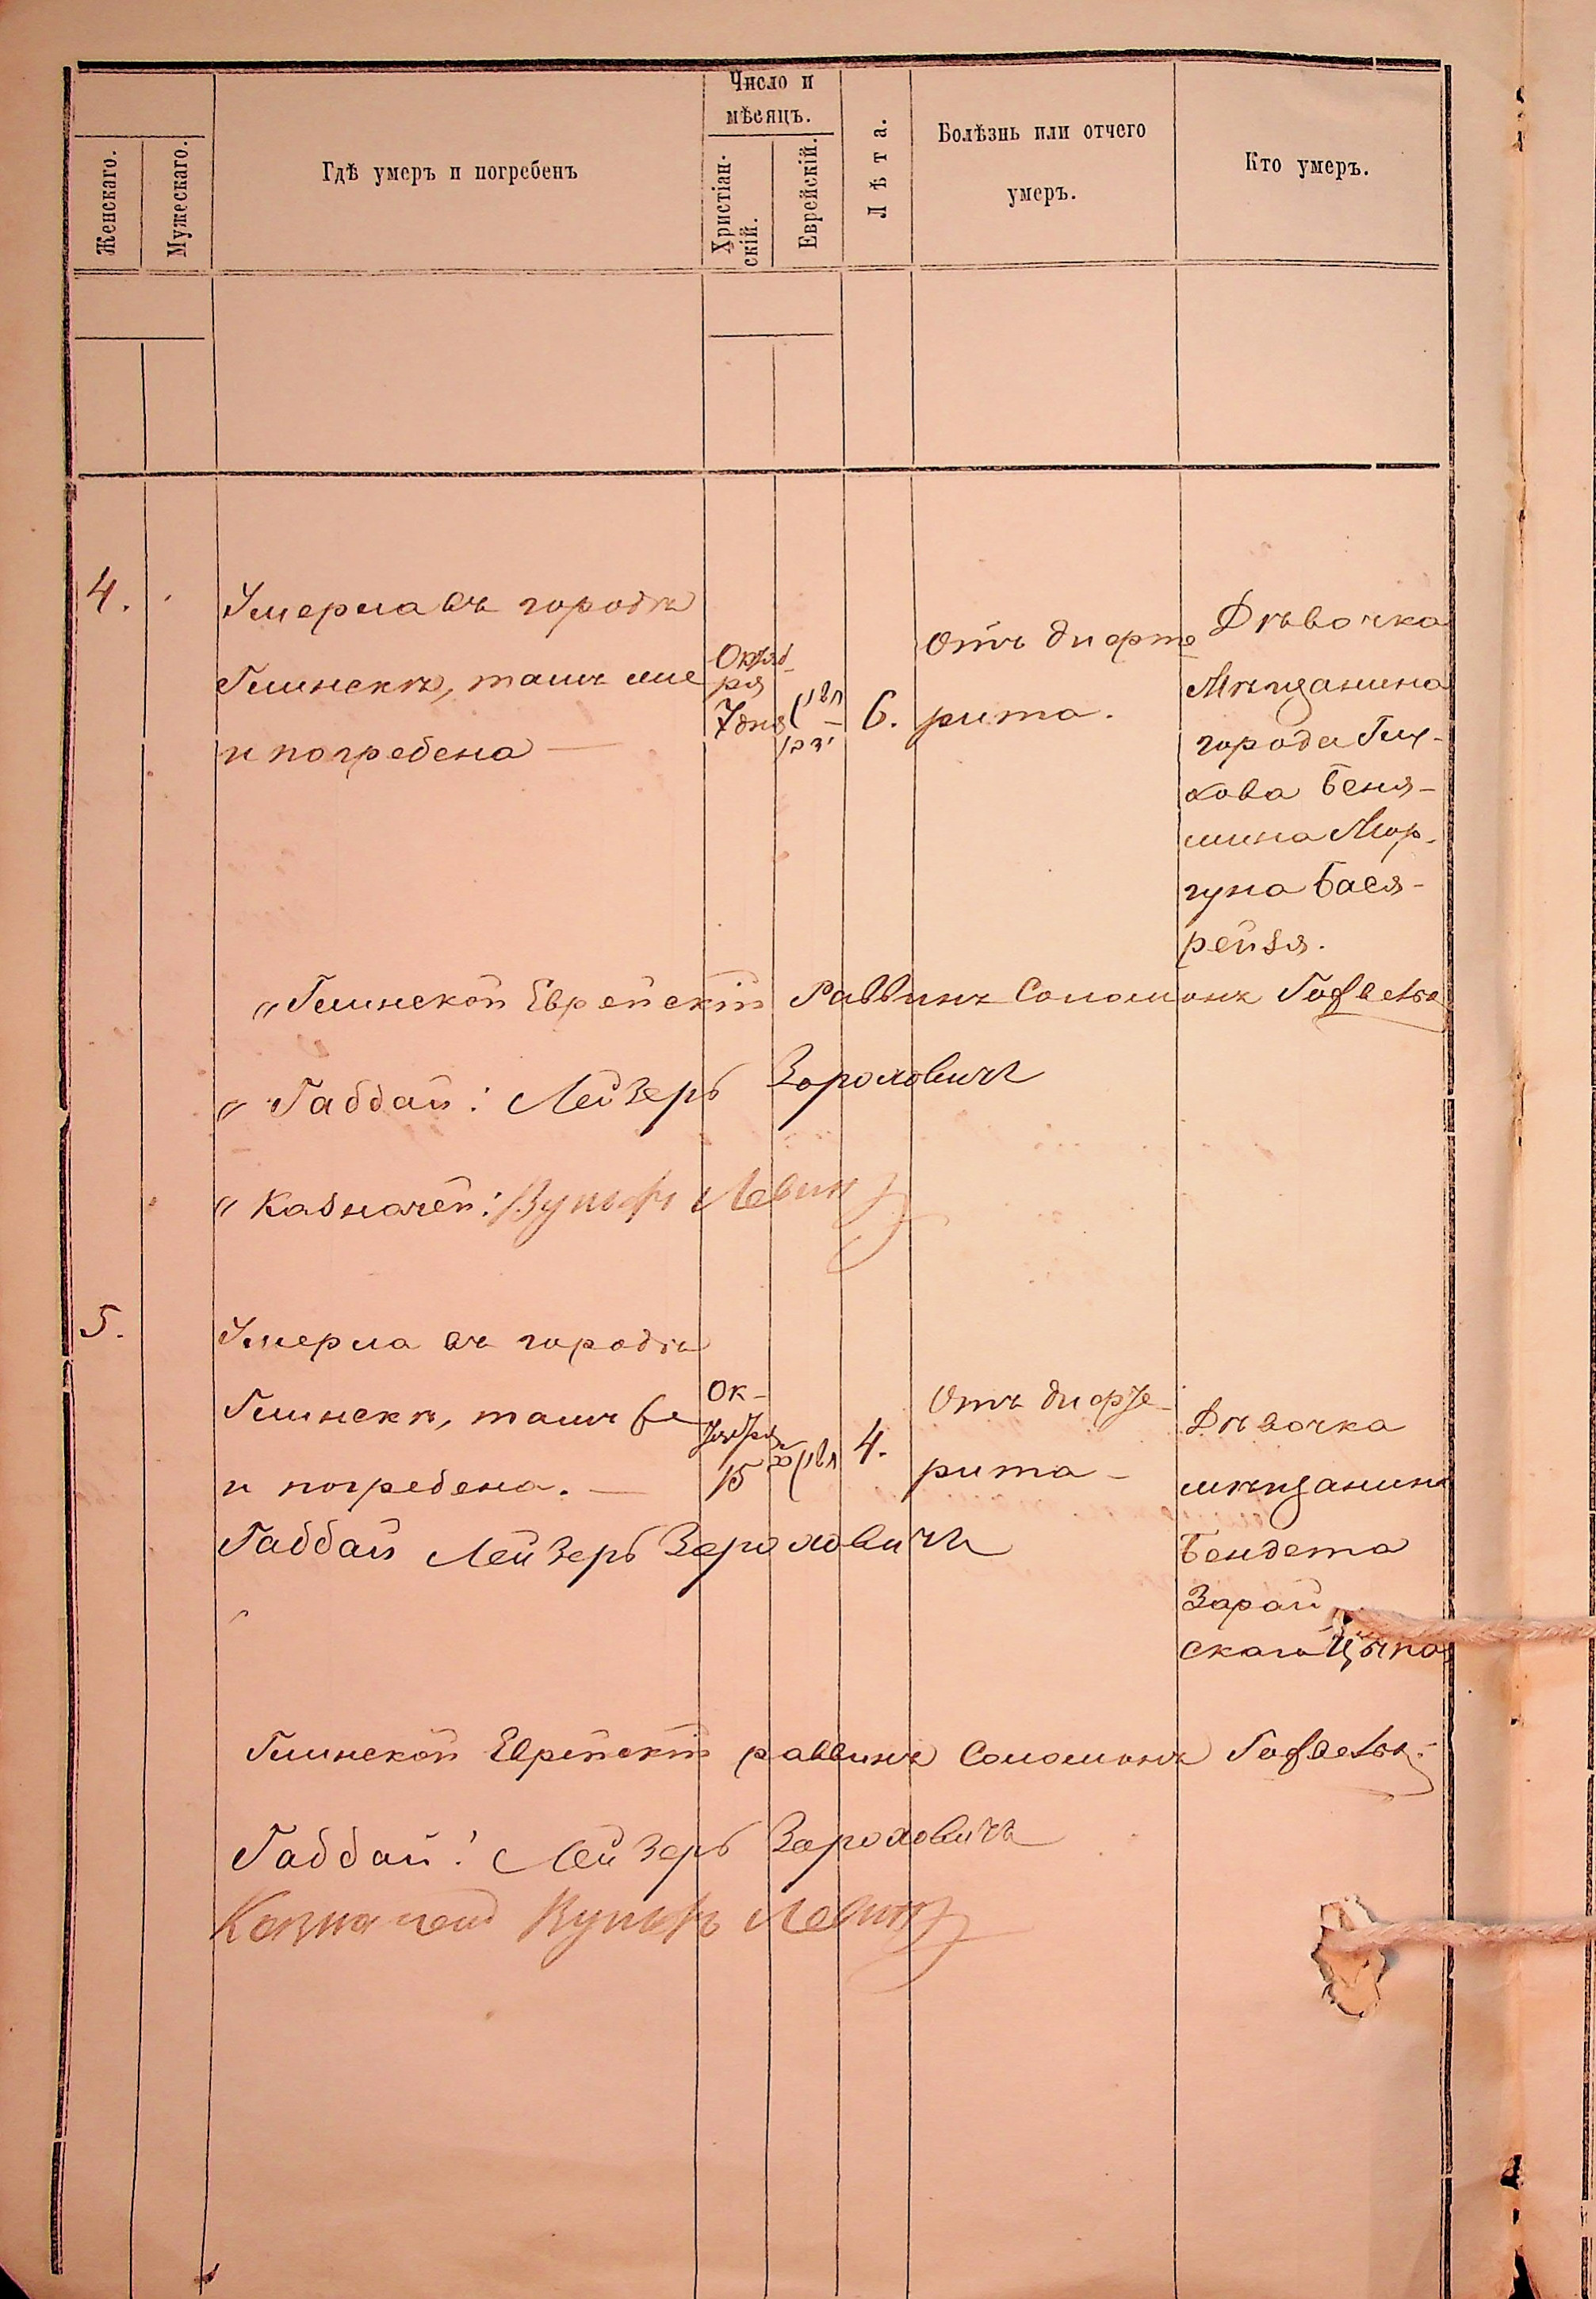 Женскаго.
Мужескаго.
Гдѣ умеръ и погребенъ
Число и
мѣсяцъ.
Христіан-
скій.
Еврейскій.
Лѣта.
Болѣзнь или отчего
умеръ.
Кто умеръ.
4.
Умерла въ городѣ
Глинскѣ, тамъ же
и погребена —
Октяб-
ря
7 дня
6.
Отъ дифте
рита.
Дѣвочка
Мѣщанина
города Глу-
хова Беня-
мина Мор-
гуна Бася-
рейзя.
„Глинской Еврейскій Раввинъ Соломонъ
„Габбай: Лейзеръ Зороховичъ
„Казначей: Вульфъ Левин
5.
Умерла въ городѣ
Глинскѣ, тамъ же
и погребена. —
Ок-
тября
15
4.
Отъ дифте-
рита —
Дѣвочка
мѣщанина
Бендета
Зарай
скаго Цыпа
Габбай Лейзеръ Зороховичъ
Глинской Еврейскій раввинъ Соломонъ
Габбай: Лейзеръ Зороховичъ
Казначей Вульфъ Левин